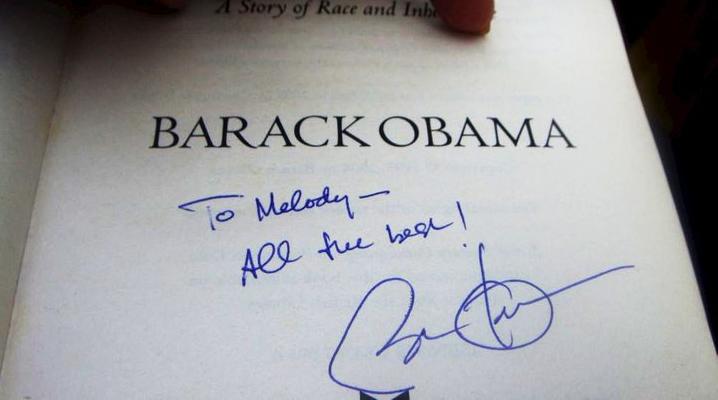 A Story of Race and Inh
BARACK OBAMA
To Melody—
All the best!